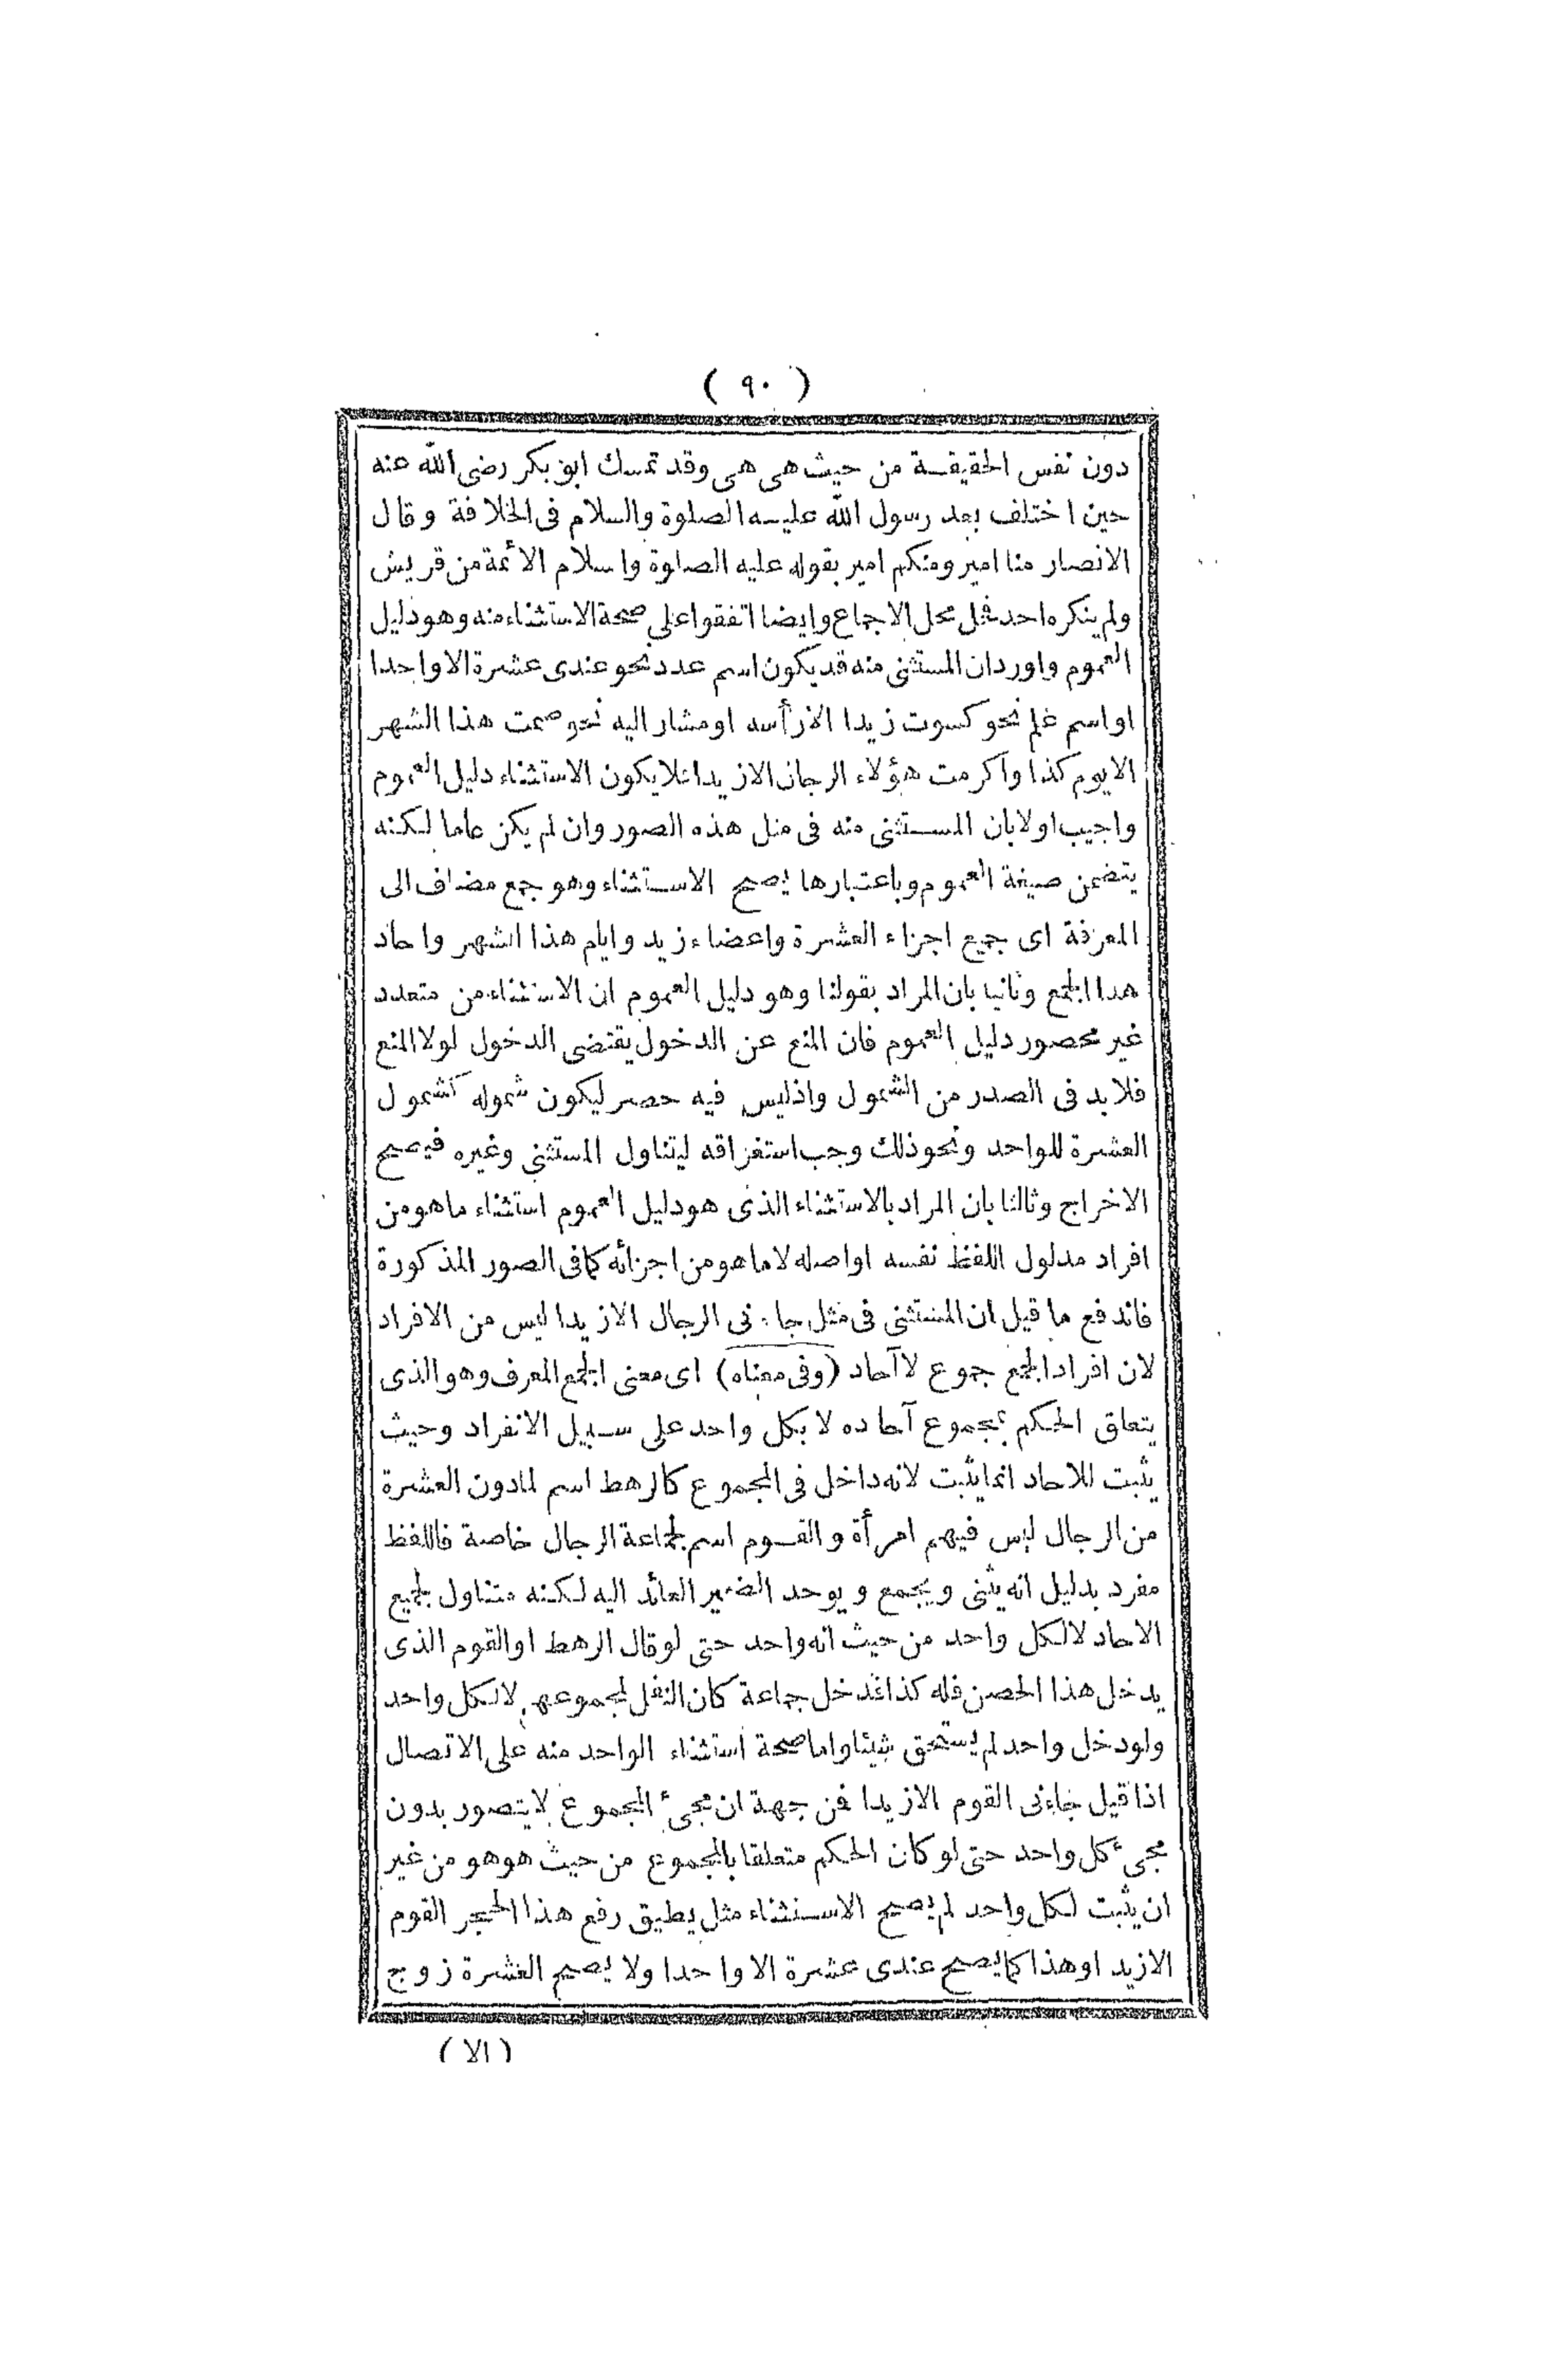 ( ٩٠ )
دون نفس الحقيقة من حيث هى هى وقد تمسك ابو بكر رضى الله عنه
حين اختلف بعد رسول الله عليه الصلوة والسلام فى الخلافة وقال
الانصار منا امير ومنكم امير بقوله عليه الصلوة واسلام الائمة من قريش
ولم ينكره احد فحل محل الاجماع وايضا اتفقوا على صحة الاستثناء منه وهو دليل
العموم واورد ان المستثنى منه قد يكون اسم عدد نحو عندى عشرة الا واحدا
او اسم علم نحو كسوت زيدا الا رأسه او مشار اليه نحو صمت هذا الشهر
الا يوم كذا واكرمت هؤلاء الرجال الا زيدا فلا يكون الاستثناء دليل العموم
واجيب اولا بان المستثنى منه فى مثل هذه الصور وان لم يكن عاما لكنه
يتضمن صيغة العموم وباعتبارها يصح الاستثناء وهو جمع مضاف الى
المعرفة اى جميع اجزاء العشرة واعضاء زيد وايام هذا الشهر واحاد
هذا الجمع وثانيا بان المراد بقولنا وهو دليل العموم ان الاستثناء من متعدد
غير محصور دليل العموم فان المنع عن الدخول يقتضى الدخول لولا المنع
فلا بد فى الصدر من الشمول واذ ليس فيه حصر ليكون شموله كشمول
العشرة للواحد ونحو ذلك وجب استغراقه ليتناول المستثنى وغيره فيصح
الاخراج وثالثا بان المراد بالاستثناء الذى هو دليل العموم استثناء ما هو من
افراد مدلول اللفظ نفسه او اصله لا ما هو من اجزائه كما فى الصور المذكورة
فاندفع ما قيل ان المستثنى فى مثل جاءنى الرجال الا زيدا ليس من الافراد
لان افراد الجمع جموع لا آحاد (وفى معناه) اى معنى الجمع المعرف وهو الذى
يتعلق الحكم بمجموع آحاده لا بكل واحد على سبيل الانفراد وحيث
يثبت للاحاد انما يثبت لانه داخل فى المجموع كالرهط اسم لما دون العشرة
من الرجال ليس فيهم امرأة والقوم اسم لجماعة الرجال خاصة فاللفظ
مفرد بدليل انه يثنى ويجمع ويوحد الضمير العائد اليه لكنه متناول لجميع
الاحاد لا لكل واحد من حيث انه واحد حتى لو قال الرهط او القوم الذى
يدخل هذا الحصن فله كذا فدخل جماعة كان النفل لمجموعهم لا لكل واحد
ولو دخل واحد لم يستحق شيئا واما صحة استثناء الواحد منه على الاتصال
اذا قيل جاءنى القوم الا زيدا فمن جهة ان مجئ المجموع لا يتصور بدون
مجئ كل واحد حتى لو كان الحكم متعلقا بالمجموع من حيث هو هو من غير
ان يثبت لكل واحد لم يصح الاستثناء مثل يطيق رفع هذا الحجر القوم
الا زيدا وهذا كما يصح عندى عشرة الا واحدا ولا يصح العشرة زوج
( الا )